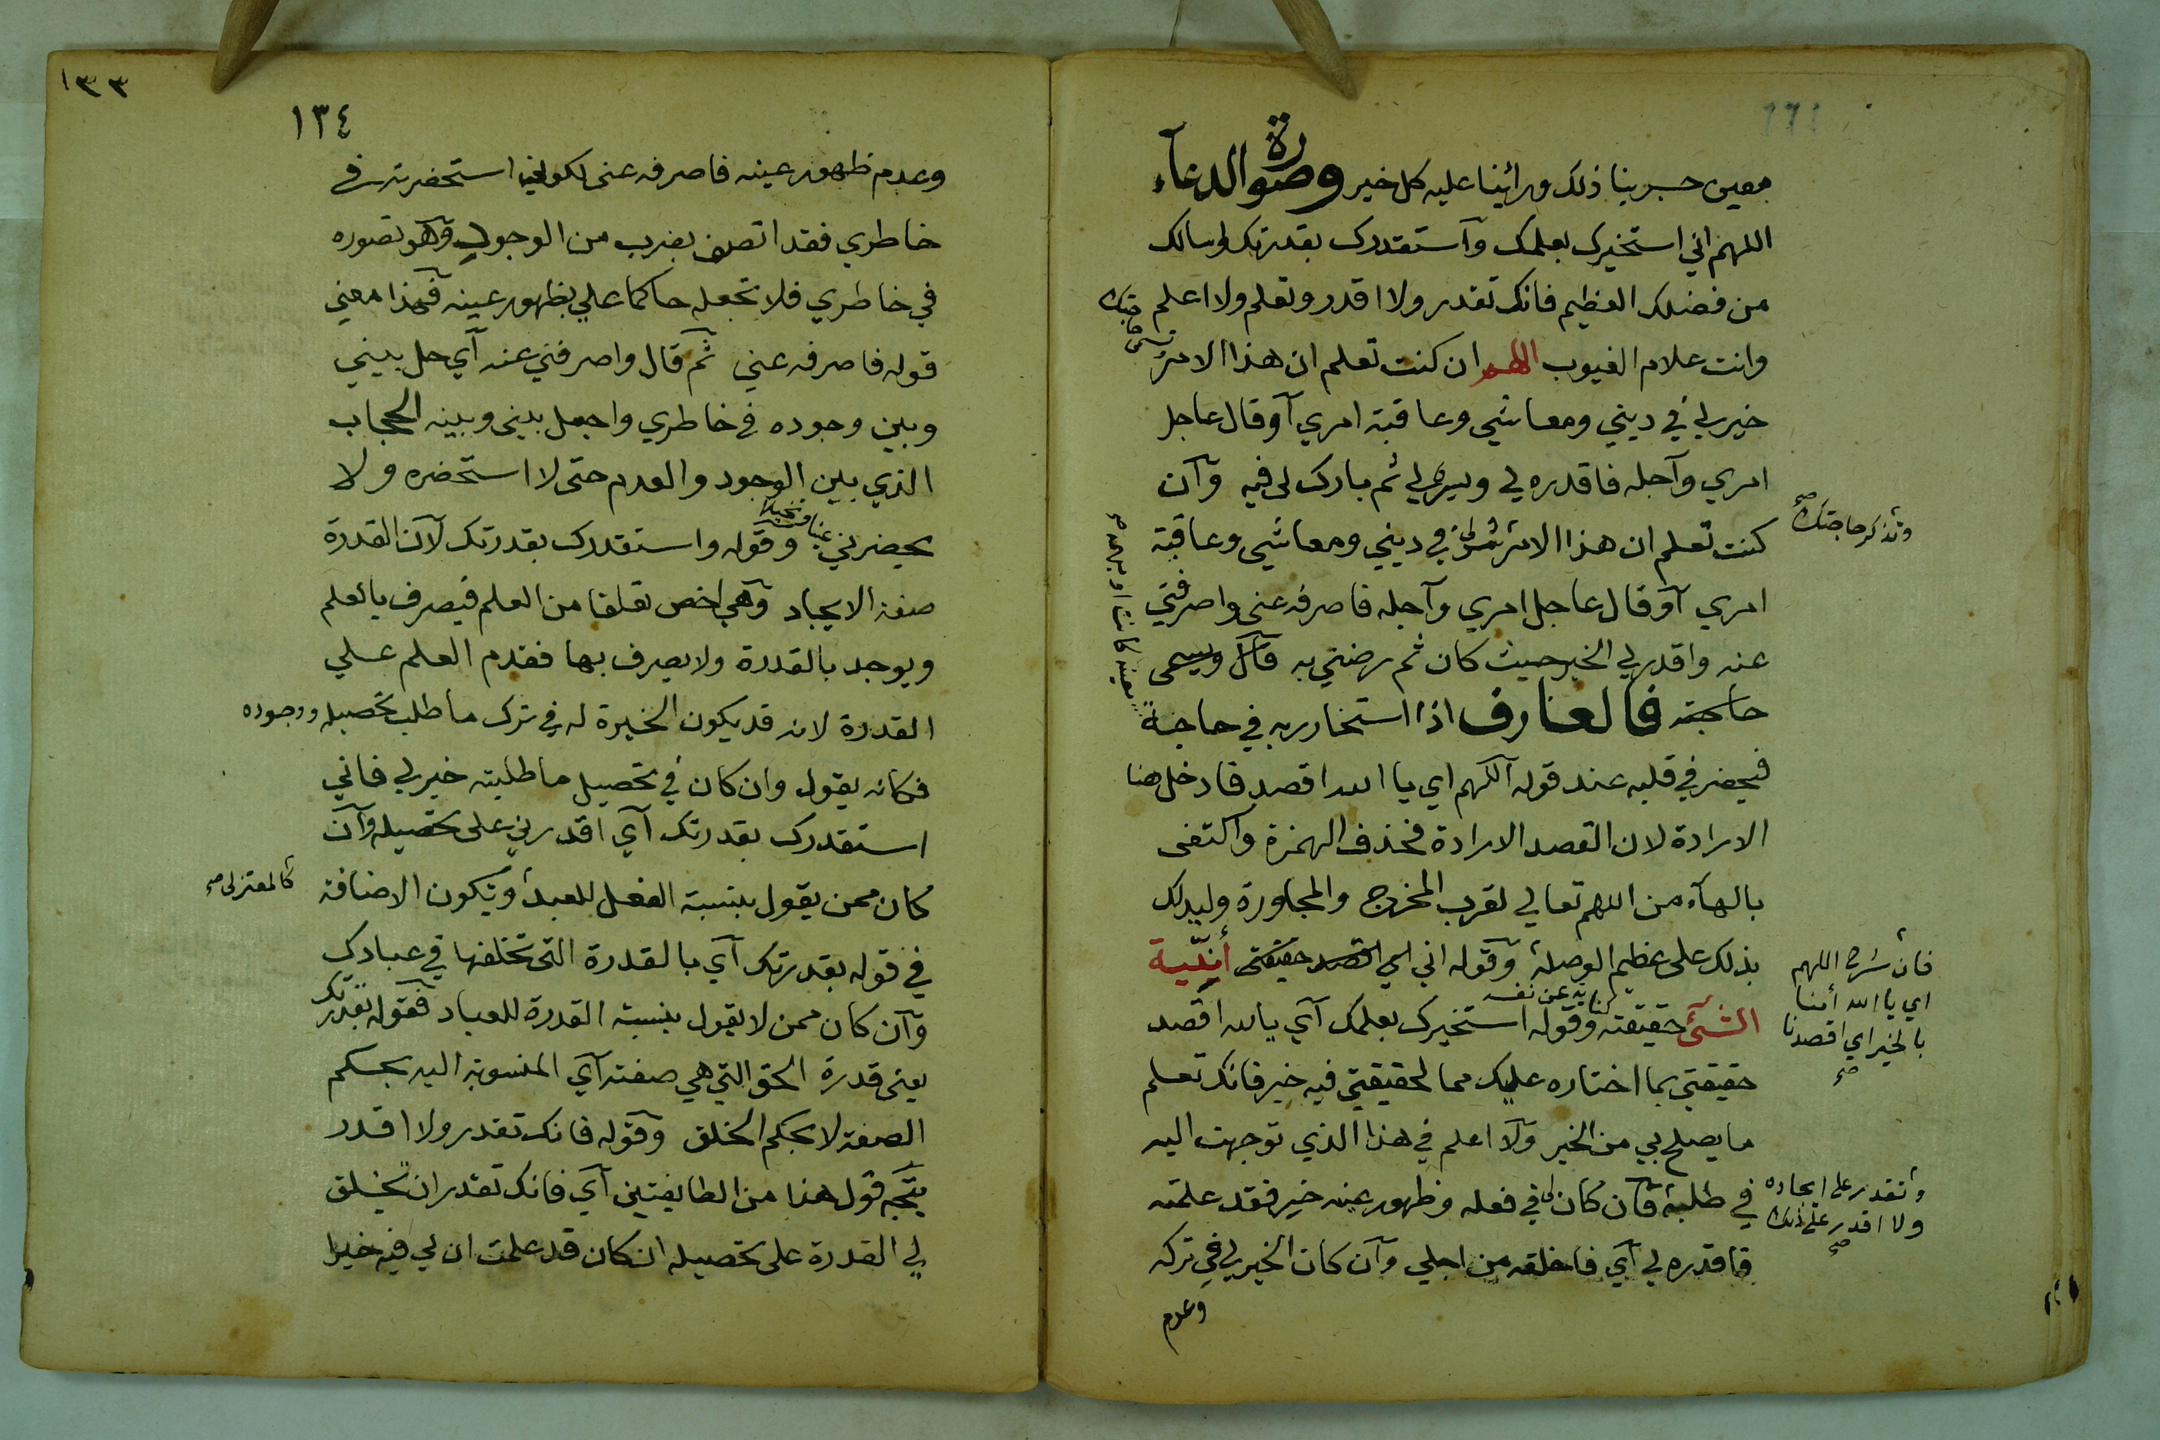 معين جربنا ذلك ورأينا عليه كل خير وصورة الدعاء
اللهم اني استخيرك بعلمك وأستقدرك بقدرتك واسالك
من فضلك العظيم فانك تقدر ولا اقدر وتعلم ولا اعلم
وانت علام الغيوب اللهم ان كنت تعلم ان هذا الامر
وتسمى حاجتك
خير لي في ديني ومعاشي وعاقبة امري أوقال عاجل
امري وآجله فاقدره لي ويسره لي ثم بارك لي فيه وان
وتذكر حاجتك صح
كنت تعلم ان هذا الامر شر لي في ديني ومعاشي وعاقبة
امري أوقال عاجل امري وآجله فاصرفه عني واصرفني
عنه واقدر لي الخير حيث كان ثم رضني به قال ويسمى
حاجته فالعارف اذا استخار ربه في حاجة
بعينه كانت او
فيحضر في قلبه عند قوله اللهم اي يا الله اقصد فادخل هنا
الارادة لان القصد الارادة فحذف الهمزة واكتفى
بالهاء من اللهم تعالي لقرب المخرج والمجاورة وليدلك
بذلك على عظيم الوصلة وقوله اني اي اقصد حقيقتي أنّيّة
الشئ حقيقته وقوله استخيرك بعلمك أي يا الله اقصد
كناية عن نفسه
فان شرح اللهم
اي يا الله أمنا
بالخير اي اقصدنا
صح
حقيقتي بما اختاره علمك مما لحقيقتي فيه خير فانك تعلم
ما يصلح بي من الخير ولا اعلم في هذا الذي توجهت اليه
في طلبه فان كان لي في فعله وظهور عينه خير فقد علمته
وتقدر على ايجاده
ولا اقدر على ذلك
صح
فاقدره لي أي فاخلقه من اجلي وان كان الخير لي في تركه
وعدم
١٣٣
١٣٤
وعدم ظهور عينه فاصرفه عني لكوني استحضرته في
خاطري فقد اتصف بضرب من الوجود وهو تصوره
في خاطري فلا تجعله حاكما علي بظهور عينه فهذا معني
قوله فاصرفه عني ثم قال واصرفني عنه أي حل بيني
وبين وجوده في خاطري واجعل بيني وبينه الحجاب
الذي بين الوجود والعدم حتى لا استحضره ولا
يحضرني وقوله واستقدرك بقدرتك لان القدرة
صفة الايجاد وهي اخص تعلقا من العلم فيصرف بالعلم
ويوجد بالقدرة ولا يصرف بها فقدم العلم علي
القدرة لانه قد يكون الخيرة له في ترك ما طلب تحصيله ووجوده
فكانه يقول وان كان في تحصيل ما طلبته خير لي فاني
استقدرك بقدرتك أي اقدرني على تحصيله وان
كان ممن يقول بنسبة الفعل للعبد وتكون الاضافة
كالمعتزلي صح
في قوله بقدرتك أي بالقدرة التي تخلقها في عبادك
وان كان ممن لا يقول بنسبة القدرة للعباد فقوله بقدرتك
يعني قدرة الحق التي هي صفته أي المنسوبة اليه بحكم
الصفة لا بحكم الخلق وقوله فانك تقدر ولا اقدر
يتجه قول هذا من الطايفتين أي فانك تقدر ان تخلق
لي القدرة على تحصيله ان كان قد علمت ان لي فيه خيرا